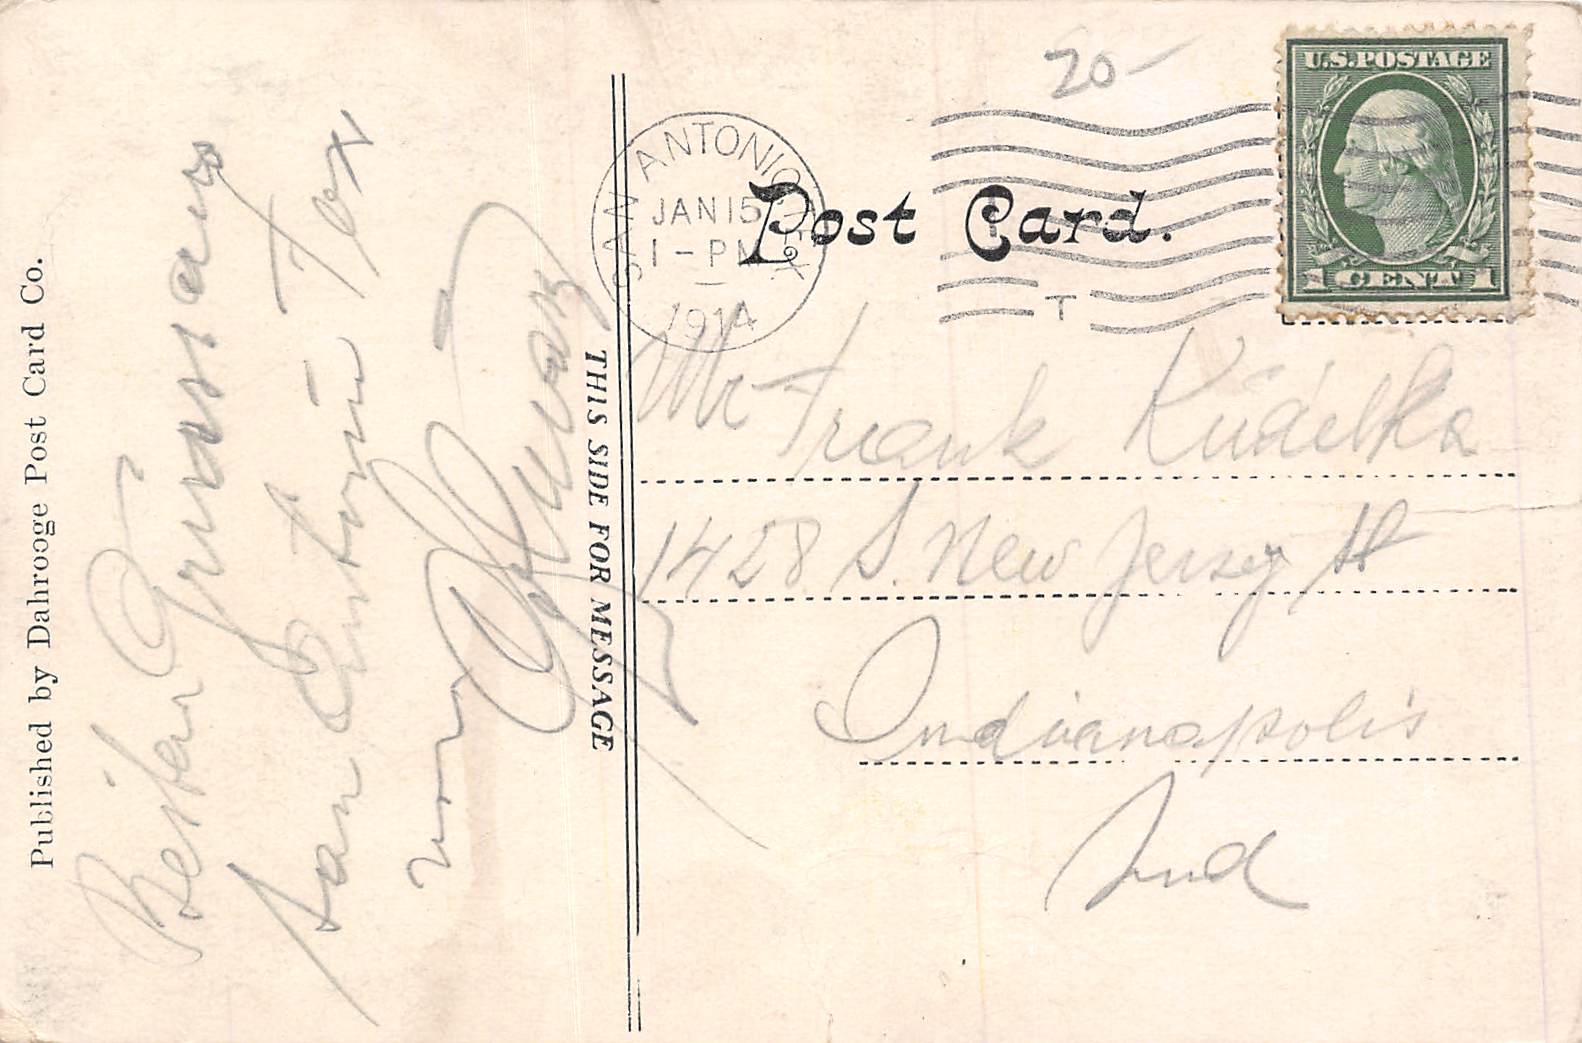 Published by Dahrooge Post Card Co.
San Antonio Tex
von
THIS SIDE FOR MESSAGE
20-
SAN ANTONIO, TEX
JAN 15
1-PM
1914
T
U.S. POSTAGE
1 CENT 1
Post Card.
Mr Frank Kudelka
1428 S. New Jersey St
Indianapolis
Ind